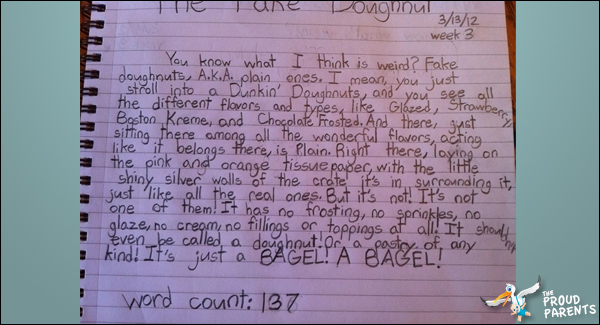 The Fake Doughnut
3/13/12
week 3
You know what I think is weird? Fake
doughnuts, A.K.A. plain ones. I mean, you just
stroll into a Dunkin' Doughnuts, and you see all
the different flavors and types, like Glazed, Strawberry,
Boston Kreme, and Chocolate Frosted. And there, just
sitting there among all the wonderful flavors, acting
like it belongs there, is Plain. Right there, laying on
the pink and orange tissue paper, with the little
shiny silver walls of the crate it's in surrounding it,
just like all the real ones. But it's not! It's not
one of them! It has no frosting, no sprinkles, no
glaze, no cream, no fillings or toppings at all! It shouldn't
even be called a doughnut! Or, a pastry of any
kind! It's just a BAGEL! A BAGEL!
word count: 137
THE
PROUD
PARENTS